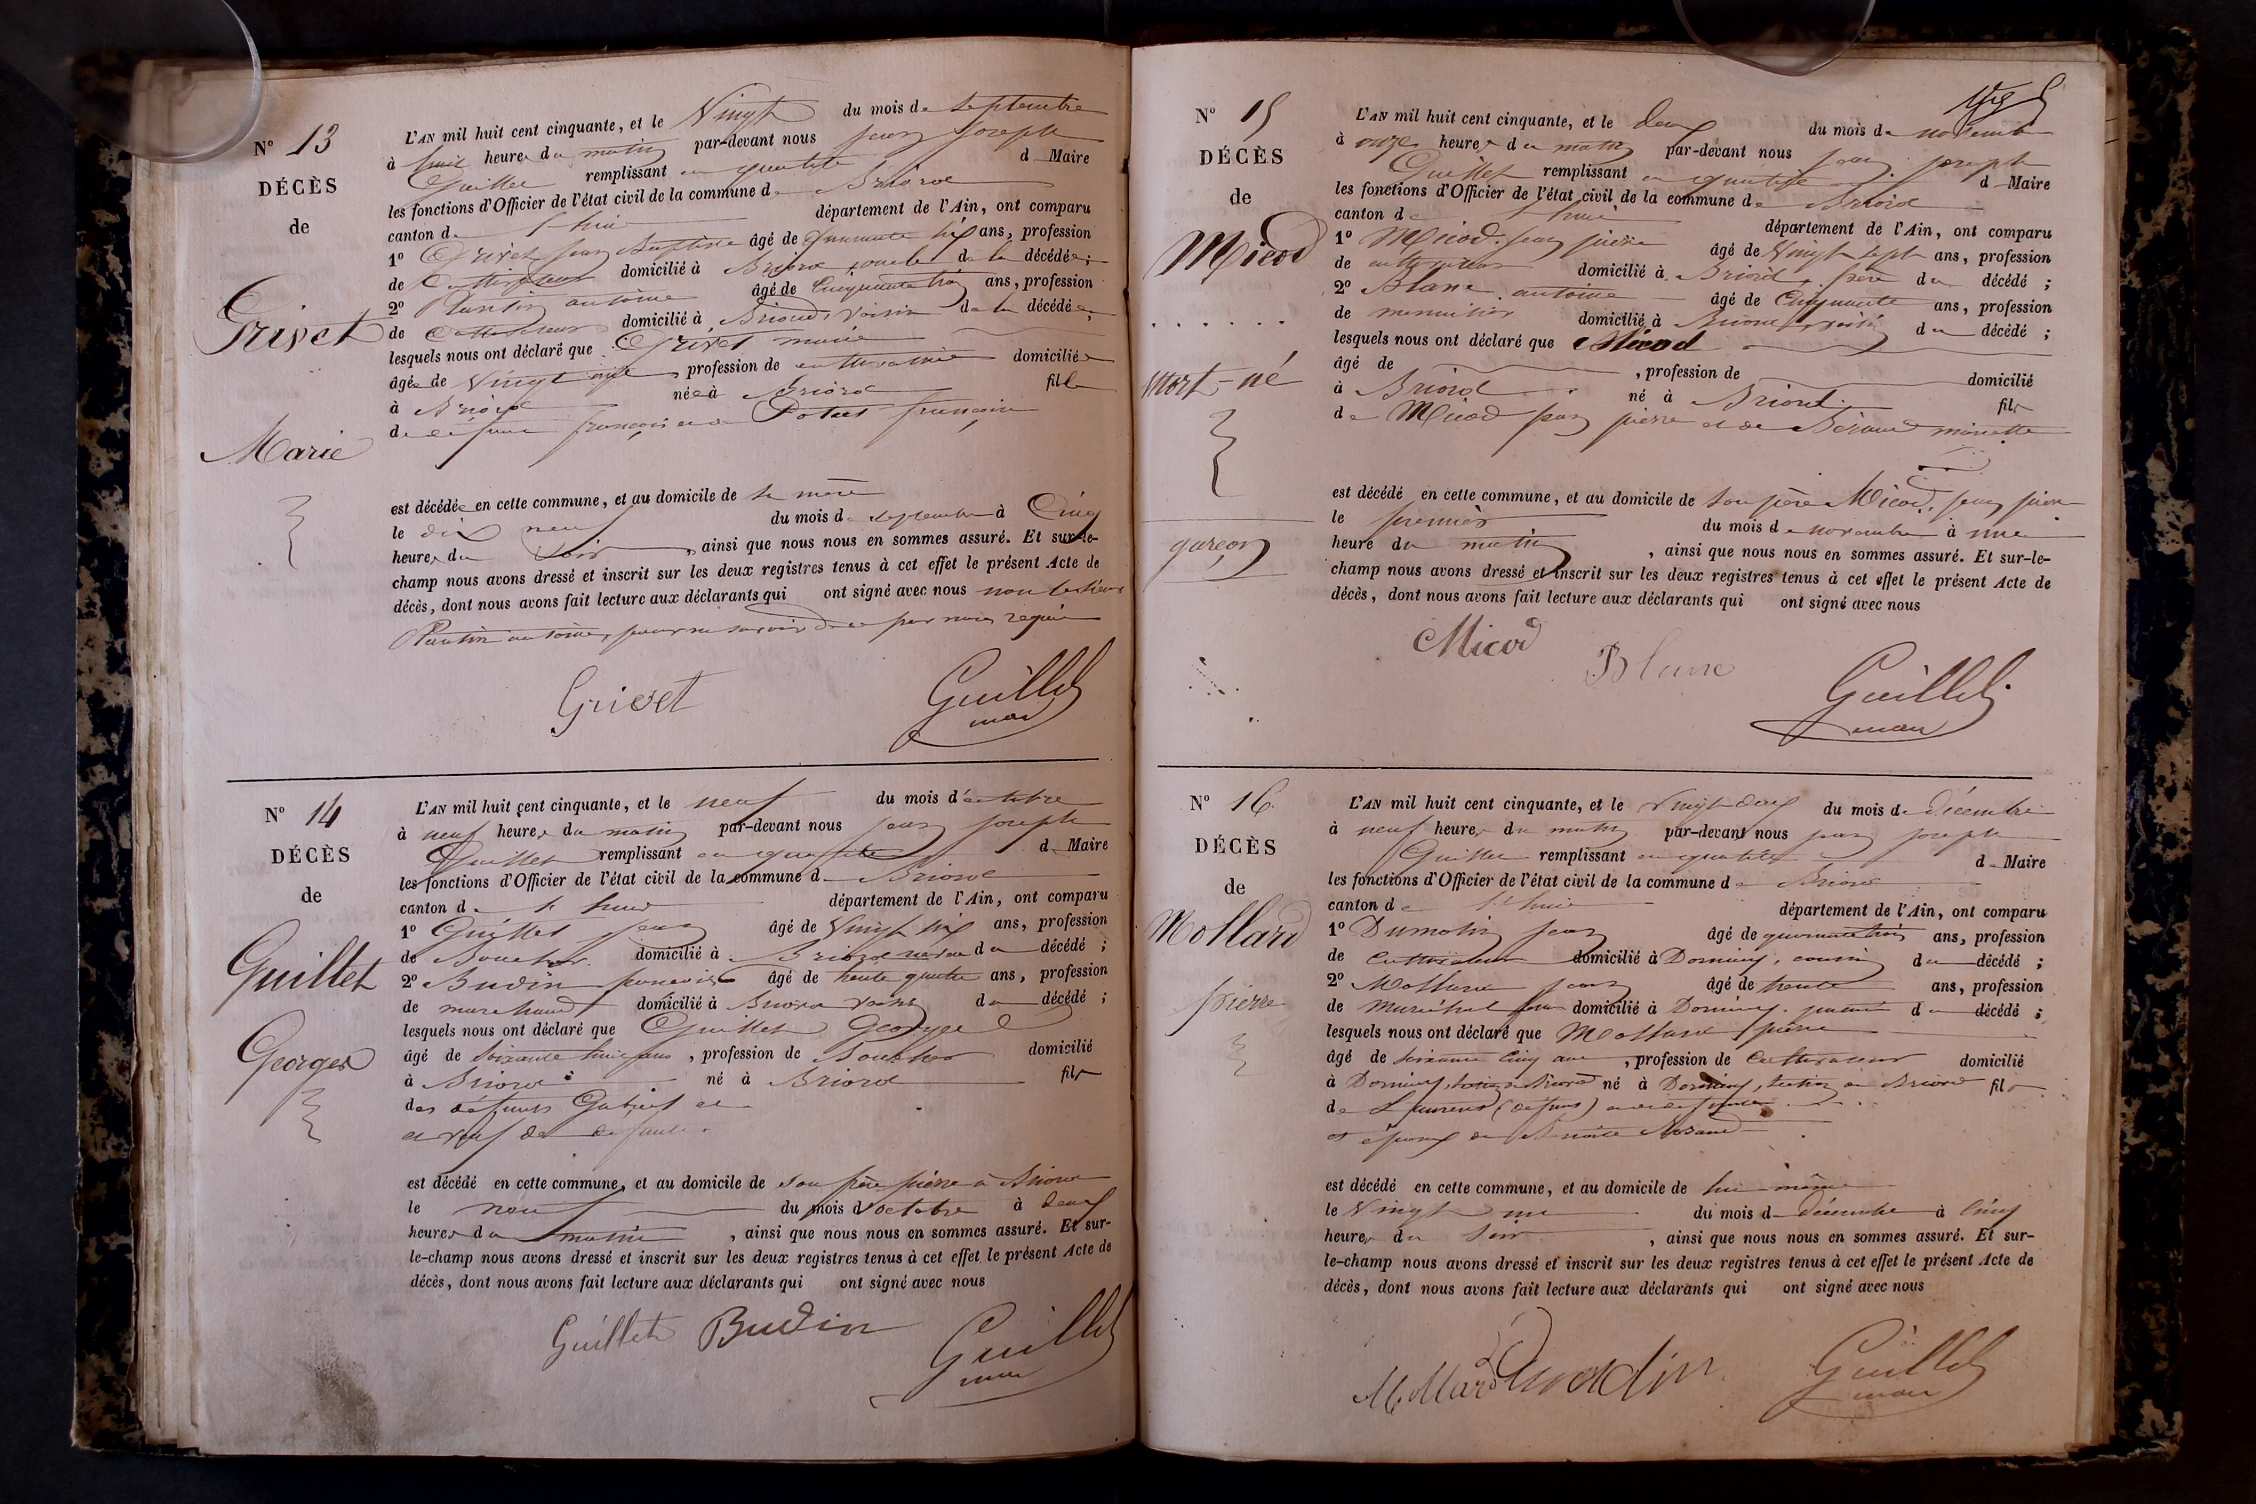 N° 13
DÉCÈS
de
Grivet
Marie
L'AN mil huit cent cinquante, et le Vingt du mois de septembre
à huit heures du matin par-devant nous jean joseph
Guillet remplissant en qualité de Maire
les fonctions d'Officier de l'état civil de la commune de Briord
canton de Lhuis département de l'Ain, ont comparu
1° Grivet jean Baptiste âgé de quarante six ans, profession
de Cultivateur domicilié à Briord, oncle de la décédée;
2° Plantin antoine âgé de Cinquante trois ans, profession
de Cultivateur domicilié à Briord, voisin de la décédée,
lesquels nous ont déclaré que Grivet marie
âgée de Vingt ans, profession de cultivatrice domiciliée
à Briord née à Briord fille
de défunt françois et de françoise
est décédée en cette commune, et au domicile de sa mère
le dix neuf du mois de septembre à Cinq
heures du Soir, ainsi que nous nous en sommes assuré. Et sur-le-
champ nous avons dressé et inscrit sur les deux registres tenus à cet effet le présent Acte de
décès, dont nous avons fait lecture aux déclarants qui ont signé avec nous non le sieur
Plantin antoine, pour ne savoir de ce par nous requis
Grivet Guillet
maire
N° 14
DÉCÈS
de
Guillet
Georges
L'AN mil huit cent cinquante, et le neuf du mois d'octobre
à neuf heures du matin par-devant nous jean joseph
Guillet remplissant en qualité de Maire
les fonctions d'Officier de l'état civil de la commune de Briord
canton de Lhuis département de l'Ain, ont comparu
1° Guillet jean âgé de Vingt six ans, profession
de Boucher domicilié à Briord neveu du décédé;
2° Budin françois âgé de trente quatre ans, profession
de marchand domicilié à Briord voisin du décédé;
lesquels nous ont déclaré que Guillet George
âgé de soixante huit ans, profession de Boucher domicilié
à Briord né à Briord fils
des défunts Gabriel et
et veuf de défunte
est décédé en cette commune, et au domicile de son frère pierre à Briord
le neuf du mois d'octobre à deux
heures du matin, ainsi que nous nous en sommes assuré. Et sur-
le-champ nous avons dressé et inscrit sur les deux registres tenus à cet effet le présent Acte de
décès, dont nous avons fait lecture aux déclarants qui ont signé avec nous
Guillet Budin Guillet
maire
N° 15
DÉCÈS
de
Micod
mort-né
garçon
L'AN mil huit cent cinquante, et le deux du mois de novembre
à onze heures du matin par-devant nous jean joseph
Guillet remplissant en qualité de Maire
les fonctions d'Officier de l'état civil de la commune de Briord
canton de Lhuis département de l'Ain, ont comparu
1° Micod jean pierre âgé de Vingt sept ans, profession
de cultivateur domicilié à Briord, père du décédé;
2° Blanc antoine âgé de Cinquante ans, profession
de menuisier domicilié à Briord, voisin du décédé;
lesquels nous ont déclaré que Micod
âgé de , profession de domicilié
à Briord né à Briord fils
de Micod jean pierre et de mariette
est décédé en cette commune, et au domicile de son père Micod, jean pierre
le premier du mois de novembre à une
heure du matin, ainsi que nous nous en sommes assuré. Et sur-le-
champ nous avons dressé et inscrit sur les deux registres tenus à cet effet le présent Acte de
décès, dont nous avons fait lecture aux déclarants qui ont signé avec nous
Micod Blanc Guillet
maire
N° 16
DÉCÈS
de
Mollard
pierre
L'AN mil huit cent cinquante, et le Vingt deux du mois de décembre
à neuf heures du matin par-devant nous jean joseph
Guillet remplissant en qualité de Maire
les fonctions d'Officier de l'état civil de la commune de Briord
canton de Lhuis département de l'Ain, ont comparu
1° Dumolin jean âgé de quarante trois ans, profession
de Cultivateur domicilié à Dorniey, cousin du décédé;
2° Mollard jean âgé de trente ans, profession
de Maréchal domicilié à Dorniey, du décédé;
lesquels nous ont déclaré que Mollard pierre
âgé de soixante Cinq ans, profession de Cultivateur domicilié
à Dorniey, section de Briord né à Dorniey, section de Briord fils
de Laurent (défunt) et de défunte
et époux de Benoite
est décédé en cette commune, et au domicile de lui-même
le Vingt un du mois de décembre à Cinq
heures du Soir, ainsi que nous nous en sommes assuré. Et sur-
le-champ nous avons dressé et inscrit sur les deux registres tenus à cet effet le présent Acte de
décès, dont nous avons fait lecture aux déclarants qui ont signé avec nous
Mollard Guillet
maire